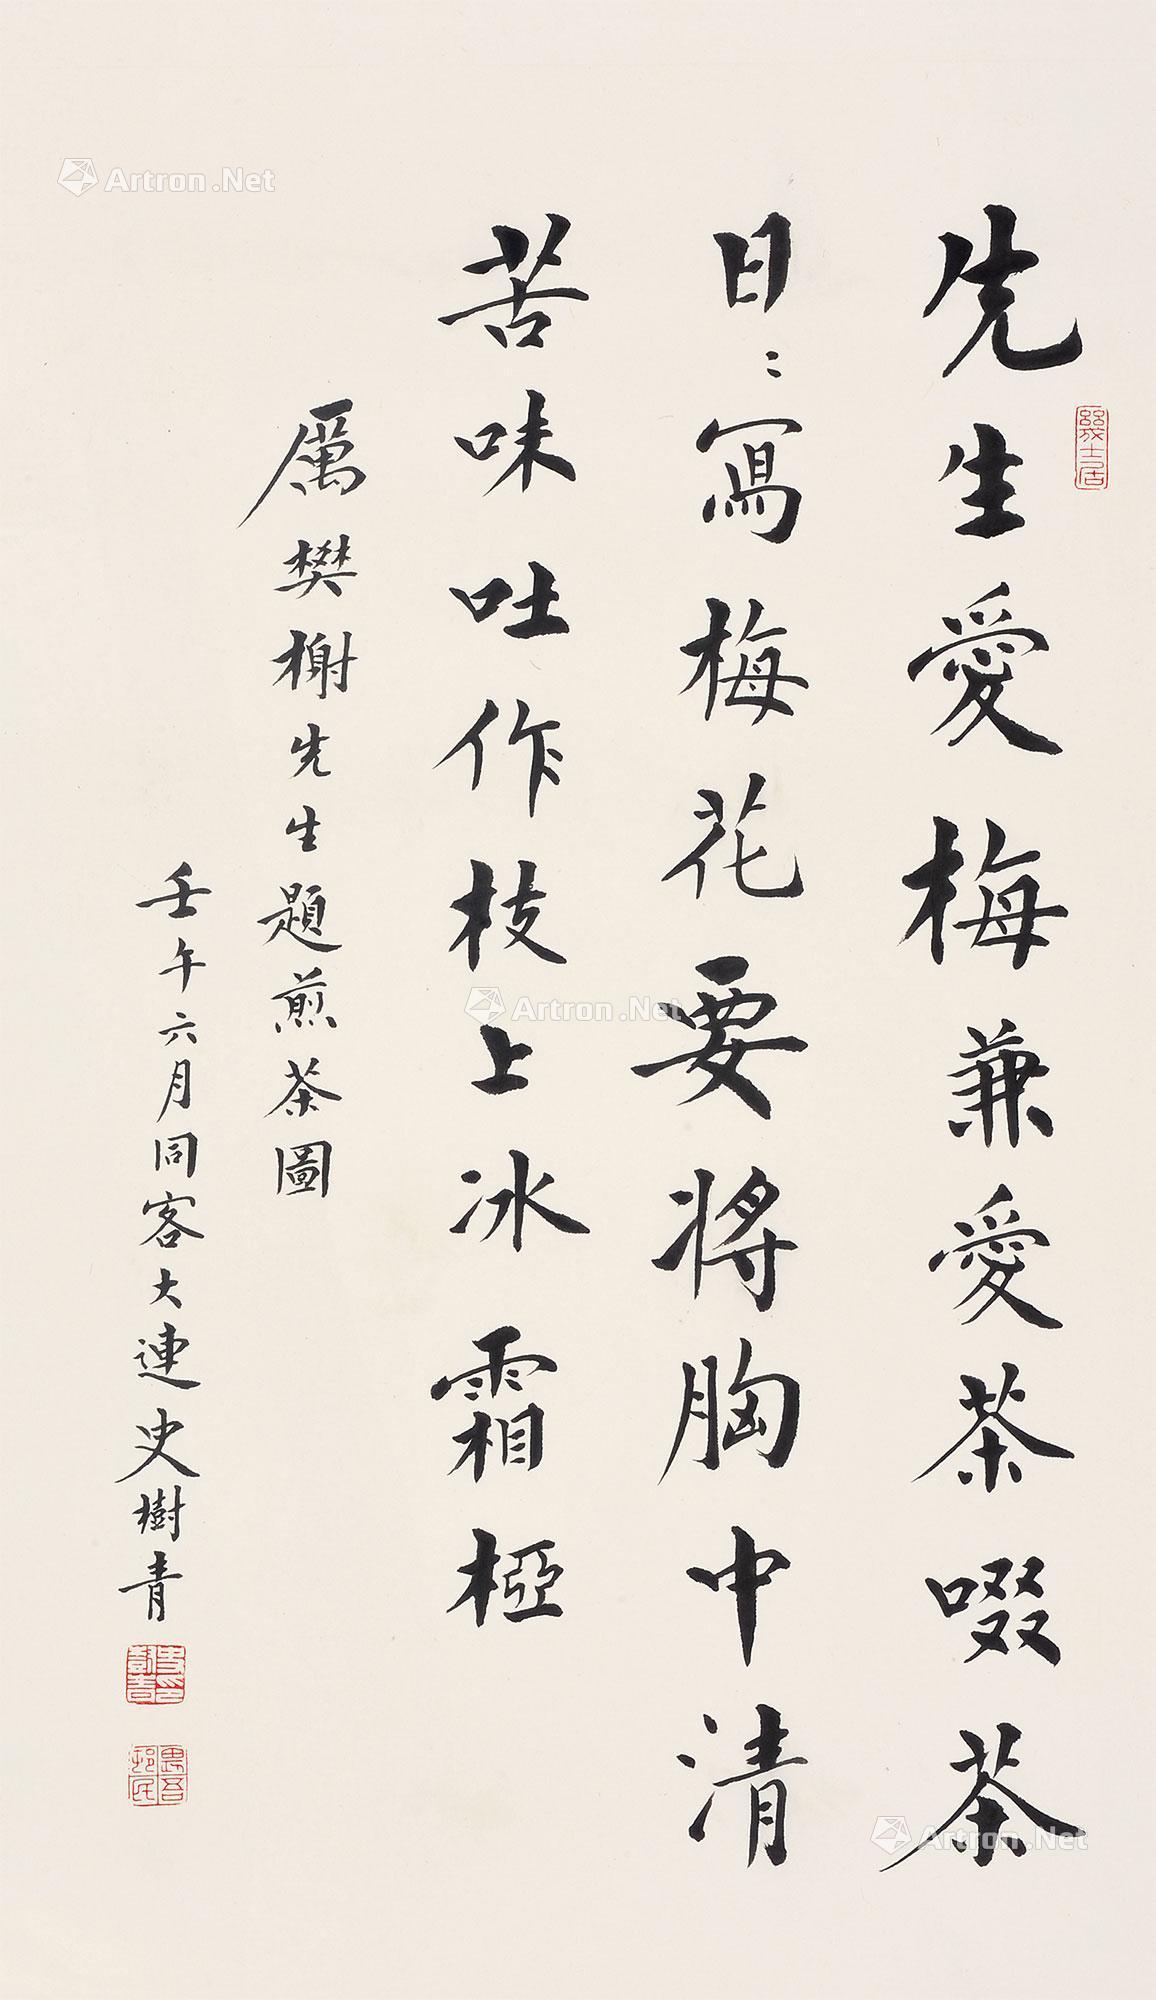 先生愛梅兼愛茶啜茶
日〻寫梅花要將胸中清
苦味吐作枝上冰霜椏
厲樊榭先生題煎茶圖
壬午六月同客大連史樹青
Artron.Net
Artron.Net
Artron.Net